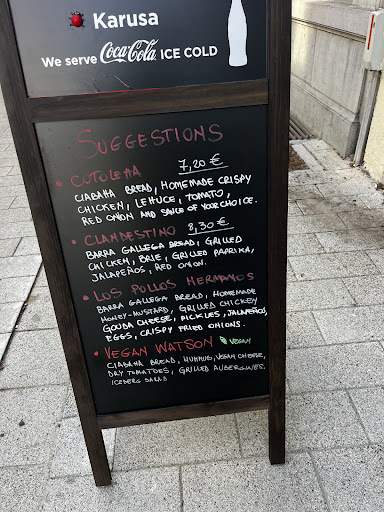 Karusa
We serve Coca-Cola ICE COLD
SUGGESTIONS
• CUTULEÑA 7,20 €
CIABATTA BREAD, HOMEMADE CRISPY
CHICKEN, LETTUCE, TOMATO,
RED ONION AND SAUCE OF YOUR CHOICE.
• CLANDESTINO 8,30 €
BARRA GALLEGA BREAD, GRILLED
CHICKEN, BRIE, GRILLED PAPRIKA,
JALAPEÑOS, RED ONION.
• LOS POLLOS HERMANOS
BARRA GALLEGA BREAD, HOMEMADE
HONEY-MUSTARD, GRILLED CHICKEN
GOUDA CHEESE, PICKLES, JALAPEÑOS,
EGGS, CRISPY FRIED ONIONS.
• VEGAN WATSON VEGAN
CIABATTA BREAD, HUMMUS, VEGAN CHEESE,
DRY TOMATOES, GRILLED AUBERGINES,
ICEBERG SALAD